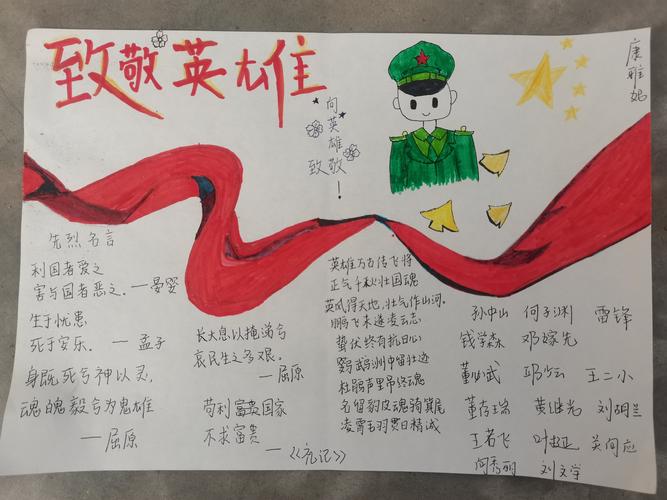 致敬英雄
向英雄
致敬!
康雅妮
先烈名言
利国者爱之
害与国者恶之.——晏婴
生于忧患
死于安乐.——孟子
身既死兮神以灵,
魂魄毅兮为鬼雄
——屈原
长太息以掩涕兮
哀民生之多艰.
——屈原
苟利国家
不求富贵
——《礼记》
英雄万古传飞将
正气千秋壮国魂
英风得天地,壮气作山河.
鹏飞未遂凌云志
蛰伏终有抗日心
鹦鹉洲中留壮迹
杜鹃声里吊终魂
名留豹皮魂骑箕尾
凌霄毛羽贯日精诚
孙中山 何子渊 雷锋
钱学森 邓稼先
董必武 邱少云 王二小
董存瑞 黄继光 刘胡兰
王若飞 叶挺 关向应
闫秀丽 刘文学